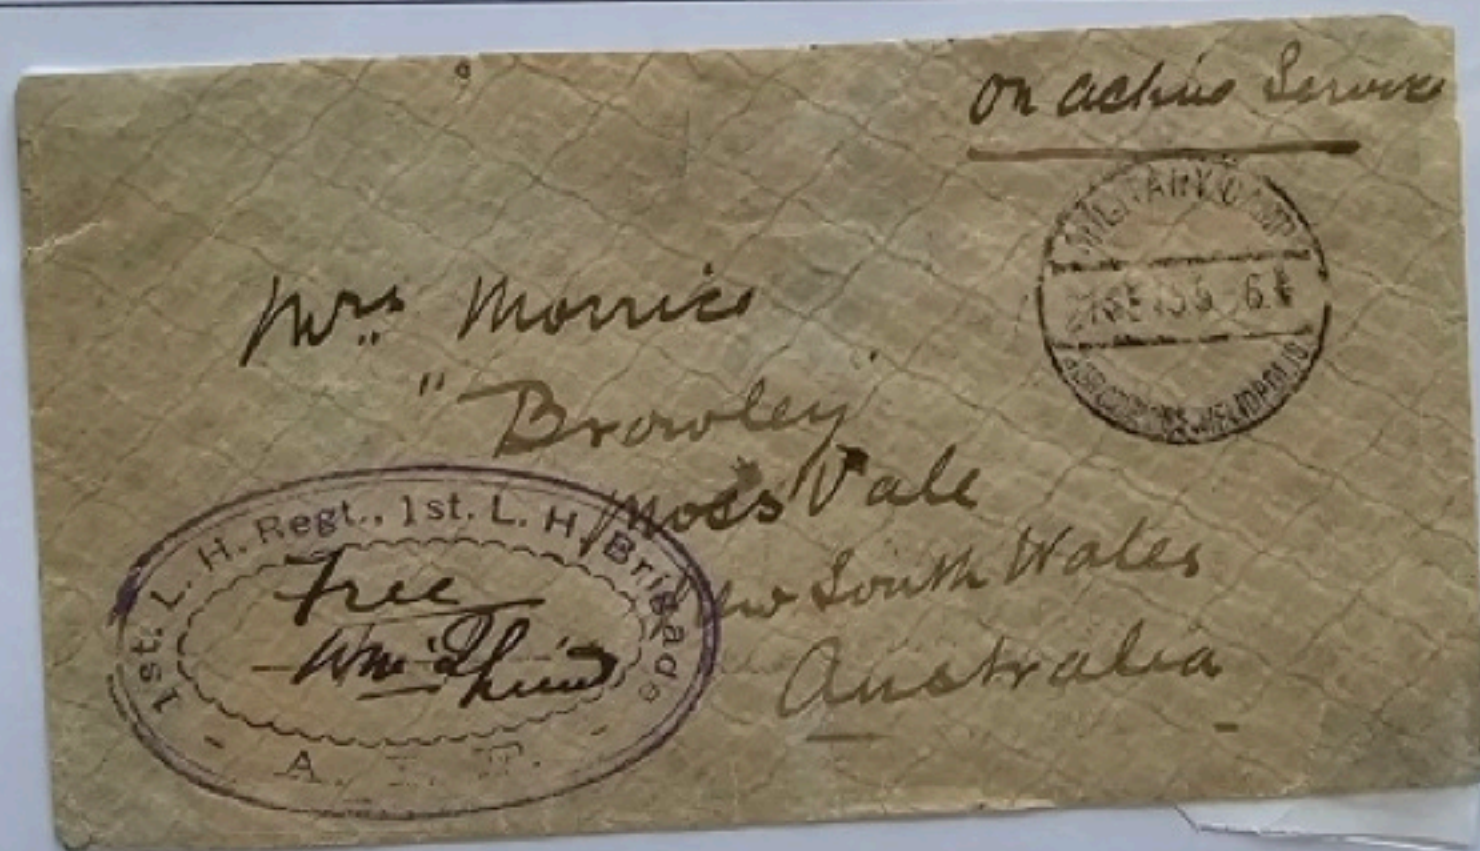 On Active Service
MILITARY CAMP
AERODROME HELIOPOLIS
Mrs Morrice
"Browley"
Moss Vale
New South Wales
Australia
1st. L. H. Regt., 1st. L. H. Brigade
Free
Wm
- A. I. F. -